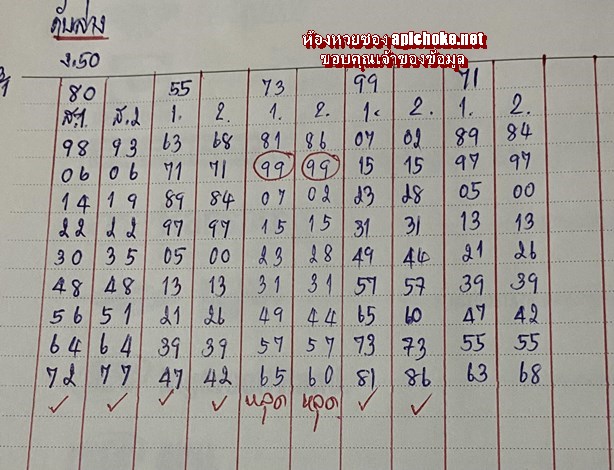 ดับล่าง
ห้องหวยซอง apichoke.net
ขอบคุณเจ้าของข้อมูล
80 55 73 99 71
ส.1 ส.2 1. 2. 1. 2. 1. 2. 1. 2.
98 93 63 68 81 86 07 02 89 84
06 06 71 71 99 99 15 15 97 97
14 19 89 84 07 02 23 28 05 00
22 22 97 97 15 15 31 31 13 13
30 35 05 00 23 28 49 44 21 26
48 48 13 13 31 31 57 57 39 39
56 51 21 26 49 44 65 60 47 42
64 64 39 39 57 57 73 73 55 55
72 77 47 42 65 60 81 86 63 68
✓ ✓ ✓ ✓ หลุด หลุด ✓ ✓